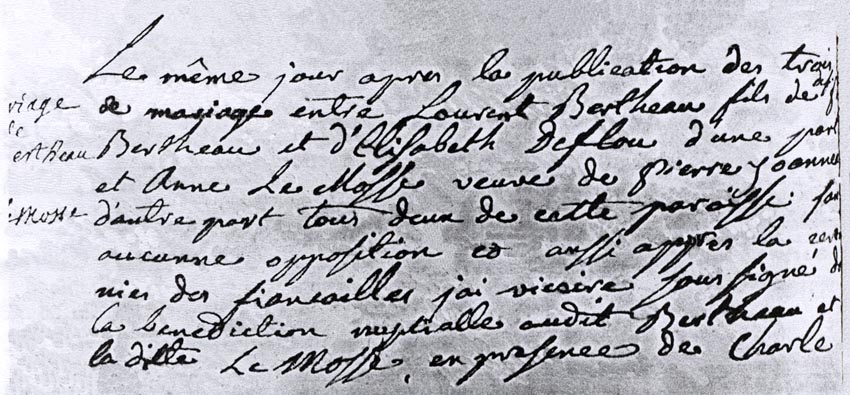 Le même jour apres la publication des trois
riage de mariage entre Lourent Bertheau fils de
Bertheau et d'Elisabeth Deflou d'une part
et Anne Le Mosse veuve de Pierre
Mosse d'autre part tous deux de cette paroisse
aucunne opposition et aussi apprés la
nies des fiancailles jai vicaire soussigné
la benediction nuptialle audit Bertheau et
la ditte Le Mosse, en presence de Charle